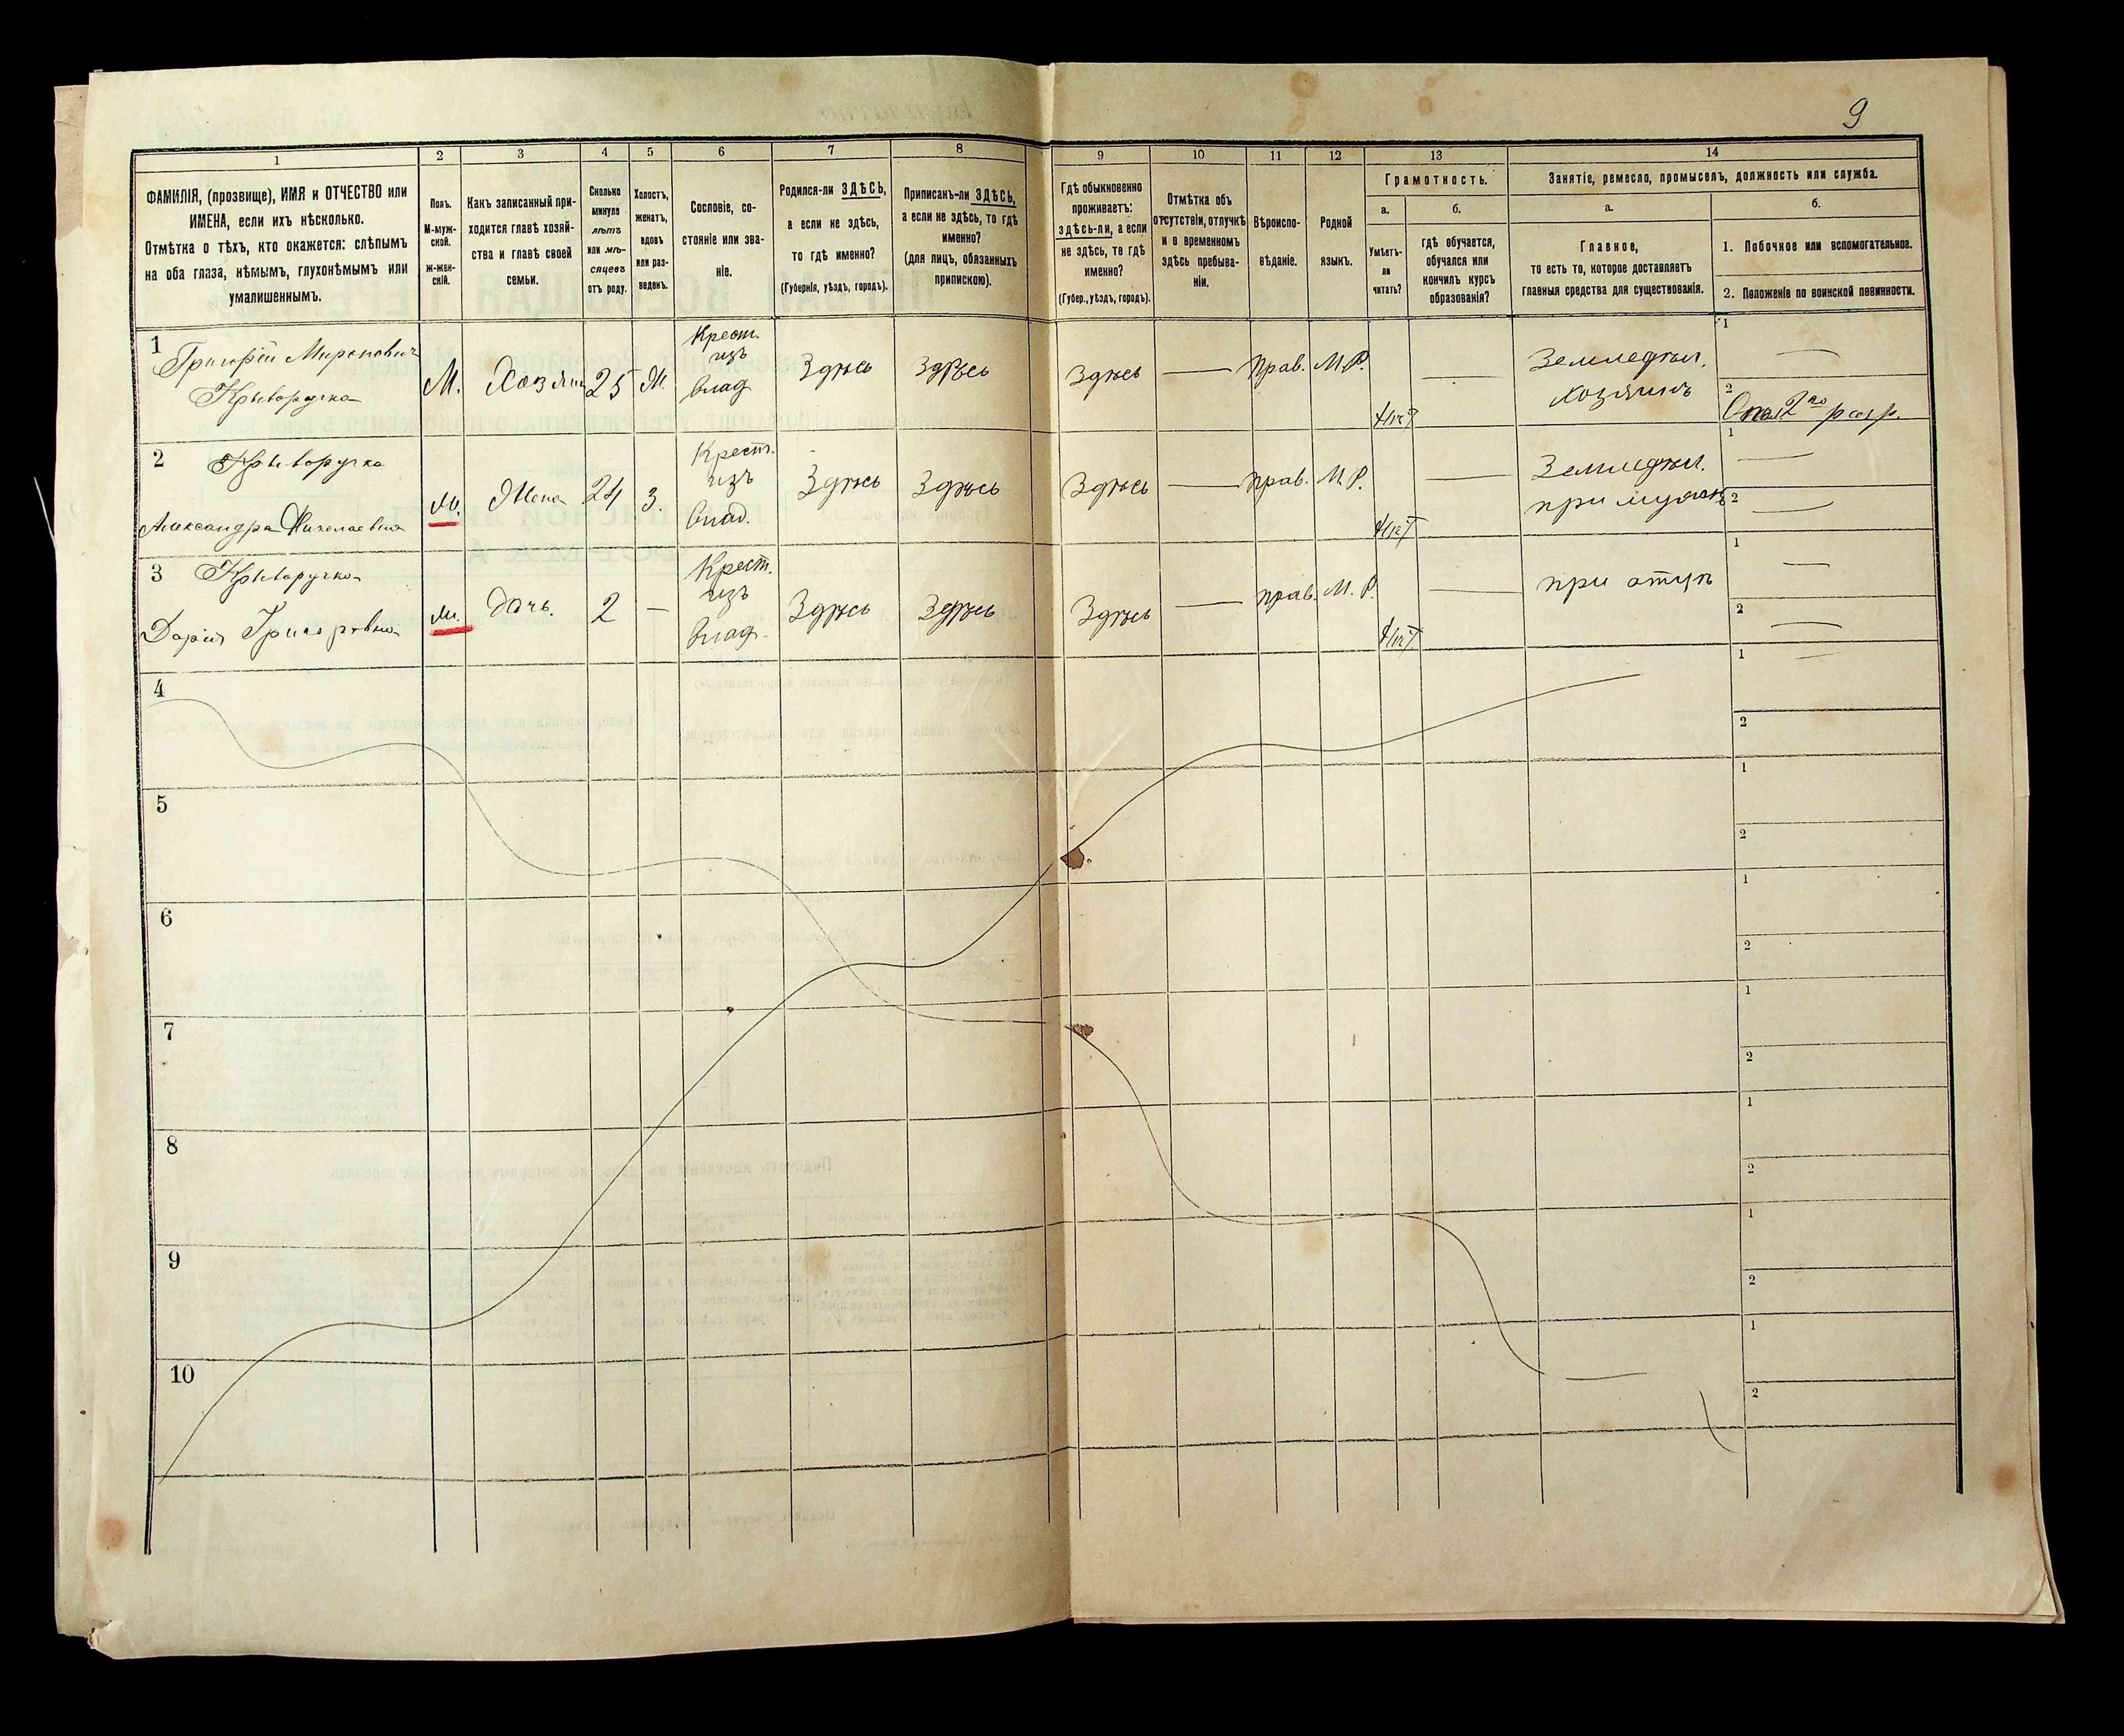 9
1
2
3
4
5
6
7
8
9
10
11
12
13
14
ФАМИЛІЯ, (прозвище), ИМЯ и ОТЧЕСТВО или
ИМЕНА, если ихъ нѣсколько.
Отмѣтка о тѣхъ, кто окажется: слѣпымъ
на оба глаза, нѣмымъ, глухонѣмымъ или
умалишеннымъ.
Полъ.
М-муж-
ской.
ж-жен-
скій.
Какъ записанный при-
ходится главѣ хозяй-
ства и главѣ своей
семьи.
Сколько
минуло
лѣтъ
или мѣ-
сяцевъ
отъ роду.
Холостъ,
женатъ,
вдовъ
или раз-
веденъ.
Сословіе, со-
стояніе или зва-
ніе.
Родился-ли ЗДѢСЬ,
а если не здѣсь,
то гдѣ именно?
(Губернія, уѣздъ, городъ).
Приписанъ-ли ЗДѢСЬ,
а если не здѣсь, то гдѣ
именно?
(для лицъ, обязанныхъ
припискою).
Гдѣ обыкновенно
проживаетъ:
здѣсь-ли, а если
не здѣсь, то гдѣ
именно?
(Губер., уѣздъ, городъ).
Отмѣтка объ
отсутствіи, отлучкѣ
и о временномъ
здѣсь пребыва-
ніи.
Вѣроиспо-
вѣданіе.
Родной
языкъ.
Грамотность.
а.
Умѣетъ-
ли
читать?
б.
гдѣ обучается,
обучался или
кончилъ курсъ
образованія?
Занятіе, ремесло, промыселъ, должность или служба.
а.
Главное,
то есть то, которое доставляетъ
главныя средства для существованія.
б.
1. Побочное или вспомогательное.
2. Положеніе по воинской повинности.
1
Григорій Мироновичъ
Криворучка
М.
Хозяин
25
М.
Крест.
изъ
влад.
Здѣсь
Здѣсь
Здѣсь
Прав.
М.Р.
Нѣт
Земледѣл.
хозяинъ
1
2
2 го разр.
2
Криворучка
Александра Николаевна
М.
Жена
24
З.
Крест.
изъ
влад.
Здѣсь
Здѣсь
Здѣсь
Прав.
М.Р.
Нѣт
Земледѣл.
при мужѣ
1
2
3
Криворучка
Дарія Григоровна
М.
дочь.
2
Крест.
изъ
влад.
Здѣсь
Здѣсь
Здѣсь
прав.
М. Р.
Нѣт
при отцѣ
1
2
4
1
2
5
1
2
6
1
2
7
1
2
8
1
2
9
1
2
10
1
2